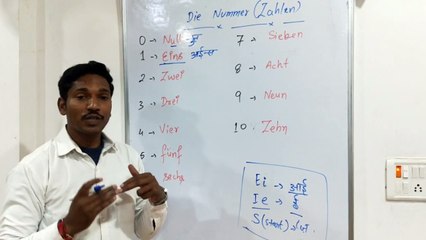 Die Nummer (Zahlen)
0 → Null नु
1 → Eins आईन्स
2 → Zwei
3 → Drei
4 → Vier
5 → fünf
sechs
7 → Sieben
8 → Acht
9 → Neun
10. Zehn
Ei → आई
Ie → ई
S (start) → ज